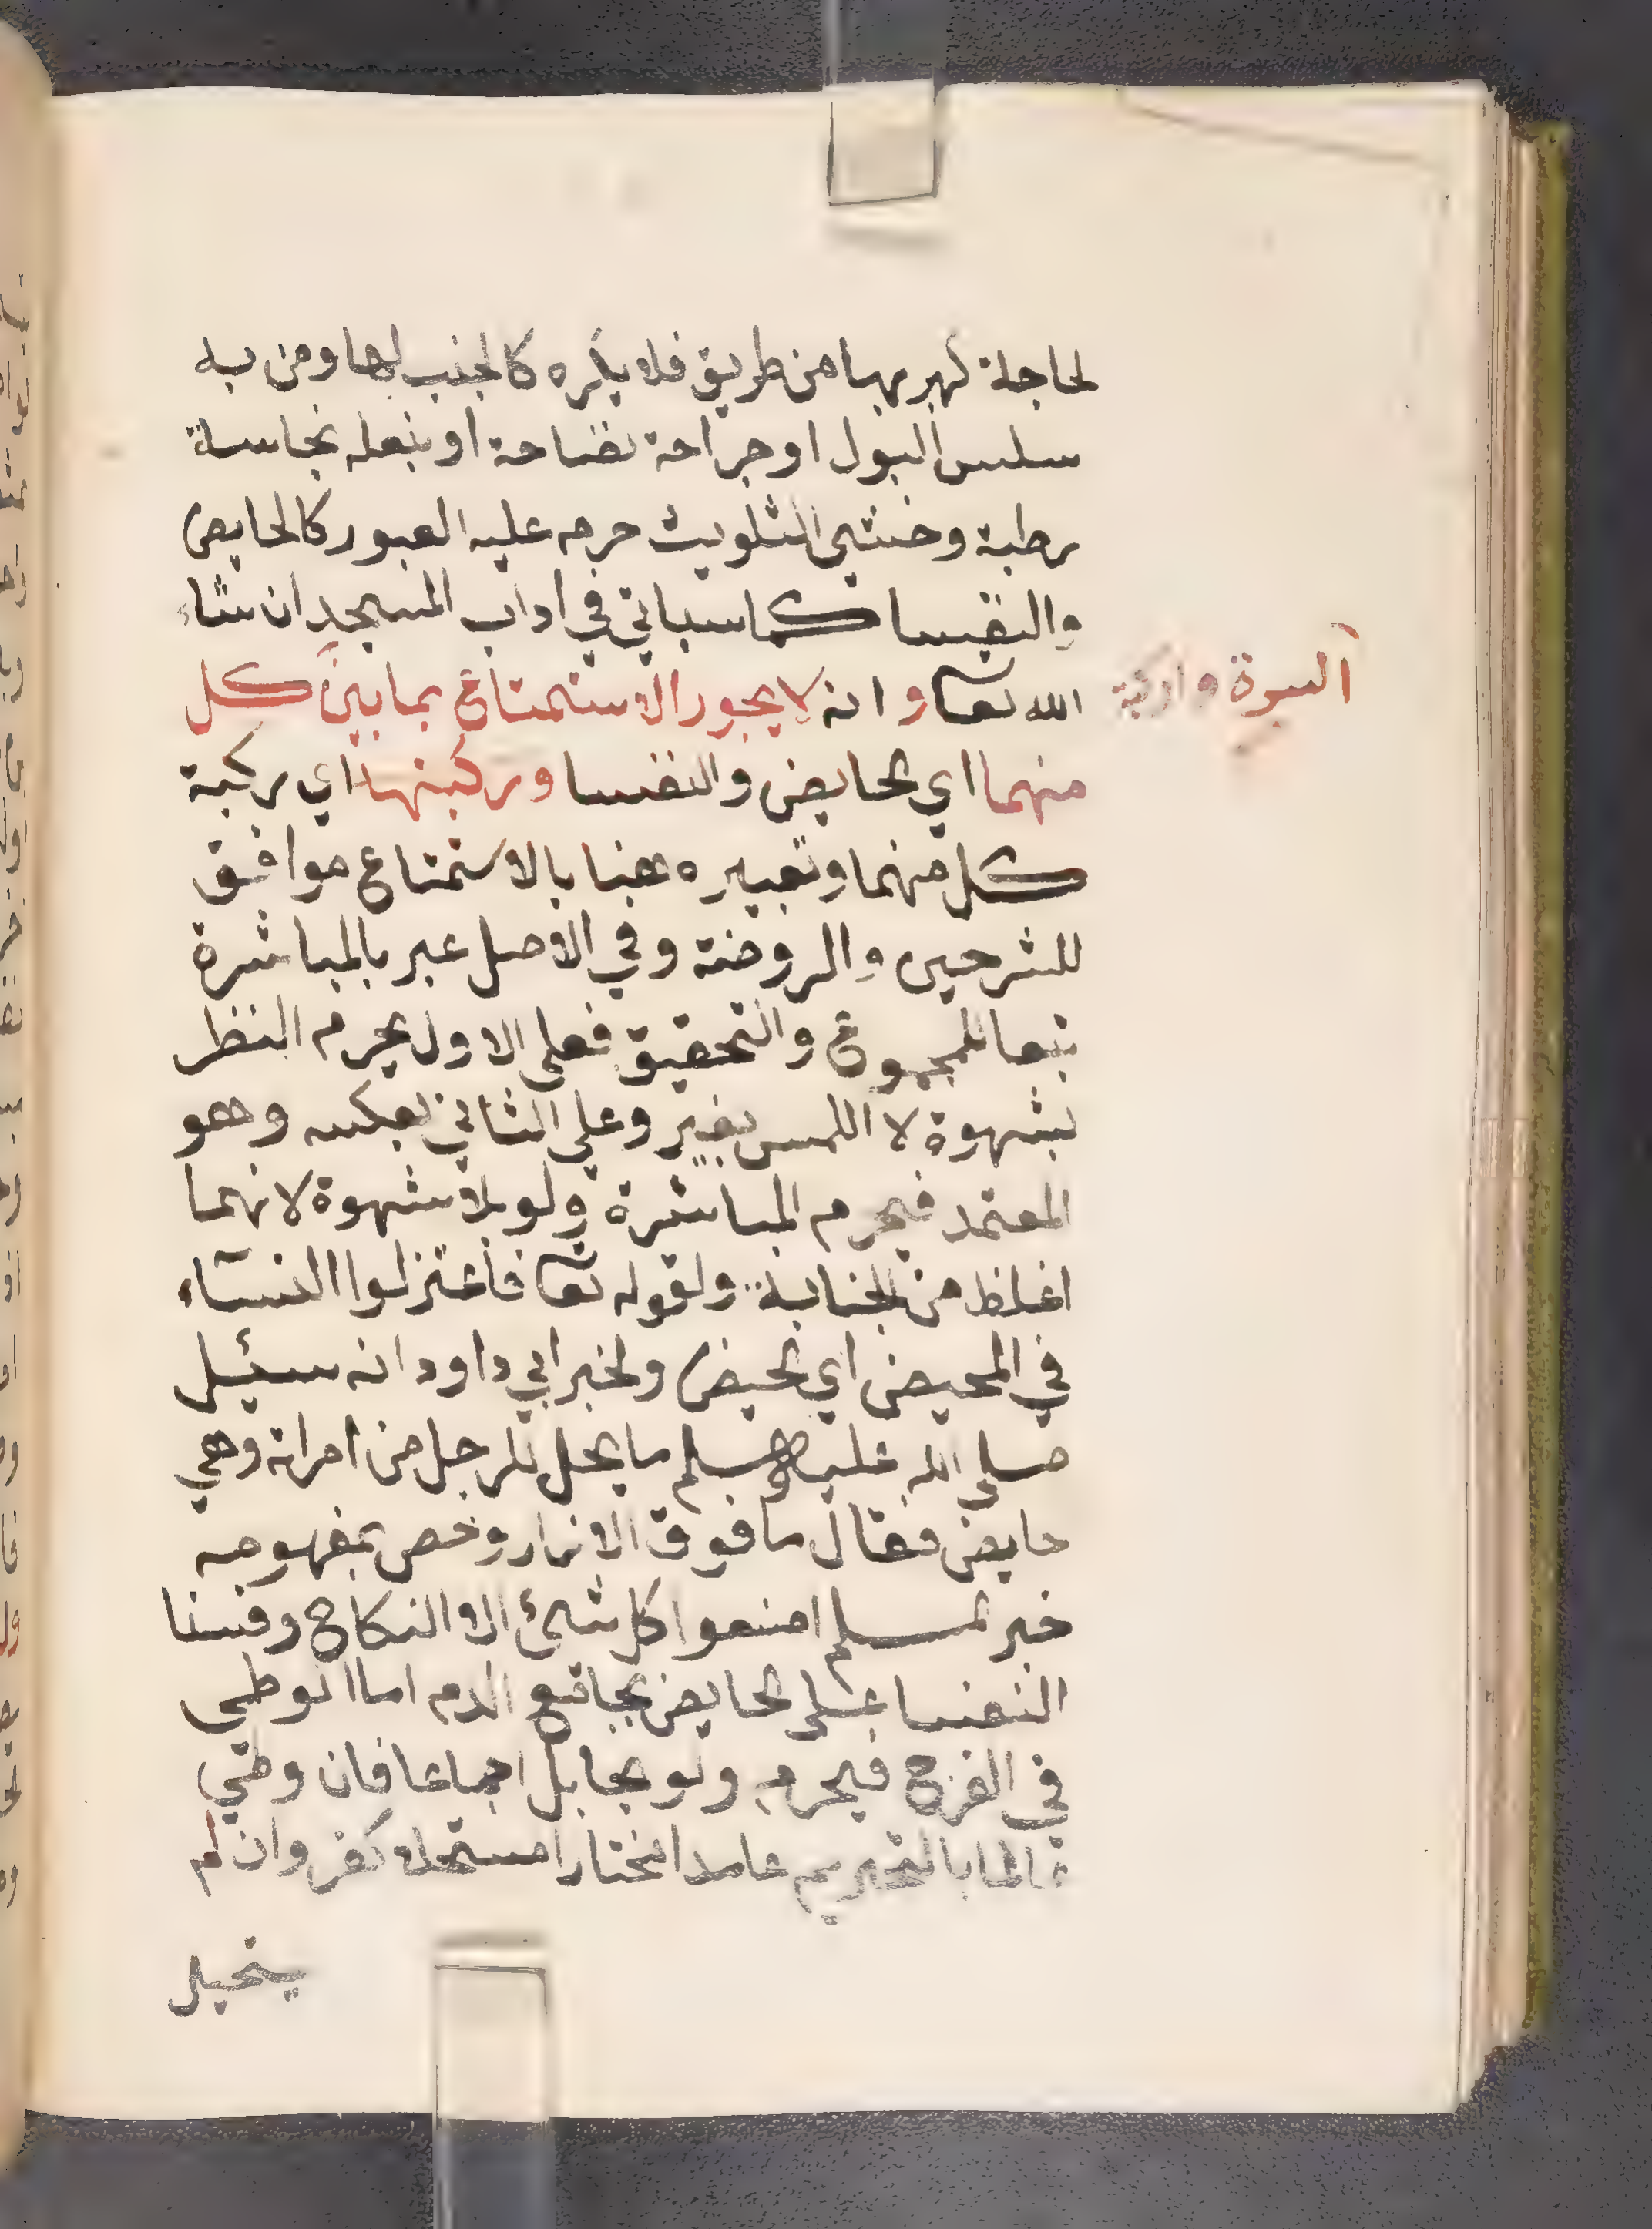 لحاجة لهربها من طريق فلا يكره كالجنب لها ومن به
سلس البول او جراحة نضاحة او بنعله نجاسة
رطبة وخشي التلويث حرم عليه العبور كالحايض
والنفسا كما سياتي في اداب المسجد ان شاء
الله تعا و انه لا يجوز الاستمتاع بما بين كل
السرة و
منهما اي الحايض والنفسا وركبتهما اي ركبة
كل منهما وتعبيره هنا بالاستمتاع موافق
للشرحين والروضة وفي الاصل عبر بالمباشرة
تبعا للمجموع والتحقيق فعلى الاول يحرم النظر
بشهوة لا اللمس بغير وعلى الثاني بعكسه وهو
المعتمد فيحرم المباشرة ولو بلا شهوة لانهما
اغلظ من الجنابة ولقوله تعا فاعتزلوا النساء
في المحيض اي الحيض ولخبر ابي داود انه سئيل
صلى الله عليه وسلم ما يحل للرجل من امراته وهي
حايض فقال ما فوق الازار وخص بمفهومه
خبر مسلم اصنعوا كل شئ الا النكاح وقسنا
النفسا على الحايض بجامع الدم اما الوطي
في الفرج فيحرم ولو بحايل اجماعا فان وطي
عالما بالتحريم عامدا مختارا مستحلا كفر وان لم
يتحيل